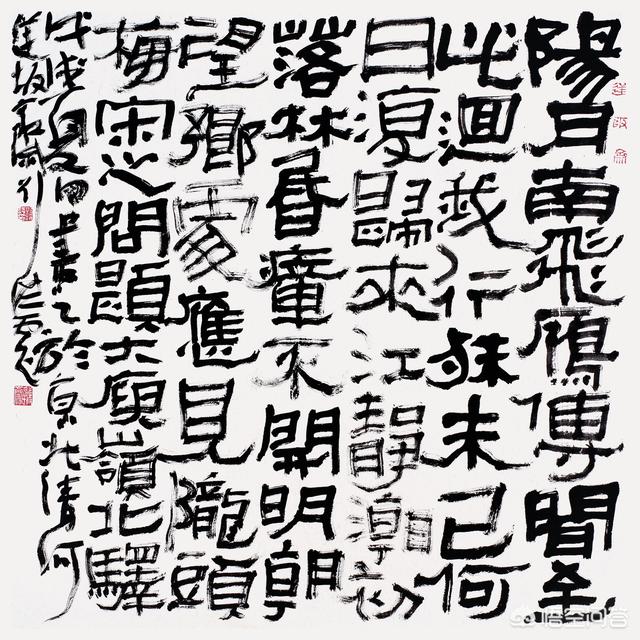 陽月南飛鴈傳聞至
此迴我行殊未已何
日復歸來江靜潮初
落林昏瘴不開明朝
望鄉處應見隴頭
梅宋之問題大庾嶺北驛
戊戌夏書之於京北清河
悟空问答